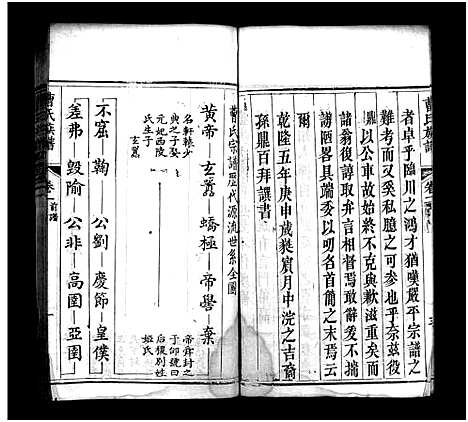 曹氏族譜
卷一
者卓乎臨川之鴻才猶嘆嚴平宗譜之
難考而又奚私臆之可參也乎奈茲役
鼎以公車故始終不克與歉滋重矣而
諸翁復諄取弁言相督焉敢辭爰不揣
謭陋畧具端委以明名首簡之末焉云
爾
乾隆五年庚申歲蕤賓月中浣之吉裔
孫鼎百拜譔書
曹氏宗譜歷代源流世系全圖
黃帝 玄囂 蟜極 帝嚳 棄
名軒轅少
典之子娶
元妃西陵
氏生子
玄囂
帝舜封之
于邰號曰
后稷別姓
姬氏
不窋 鞠 公劉 慶節 皇僕
差弗 毀隃 公非 高圉 亞圉
曹氏族譜
卷一 前譜